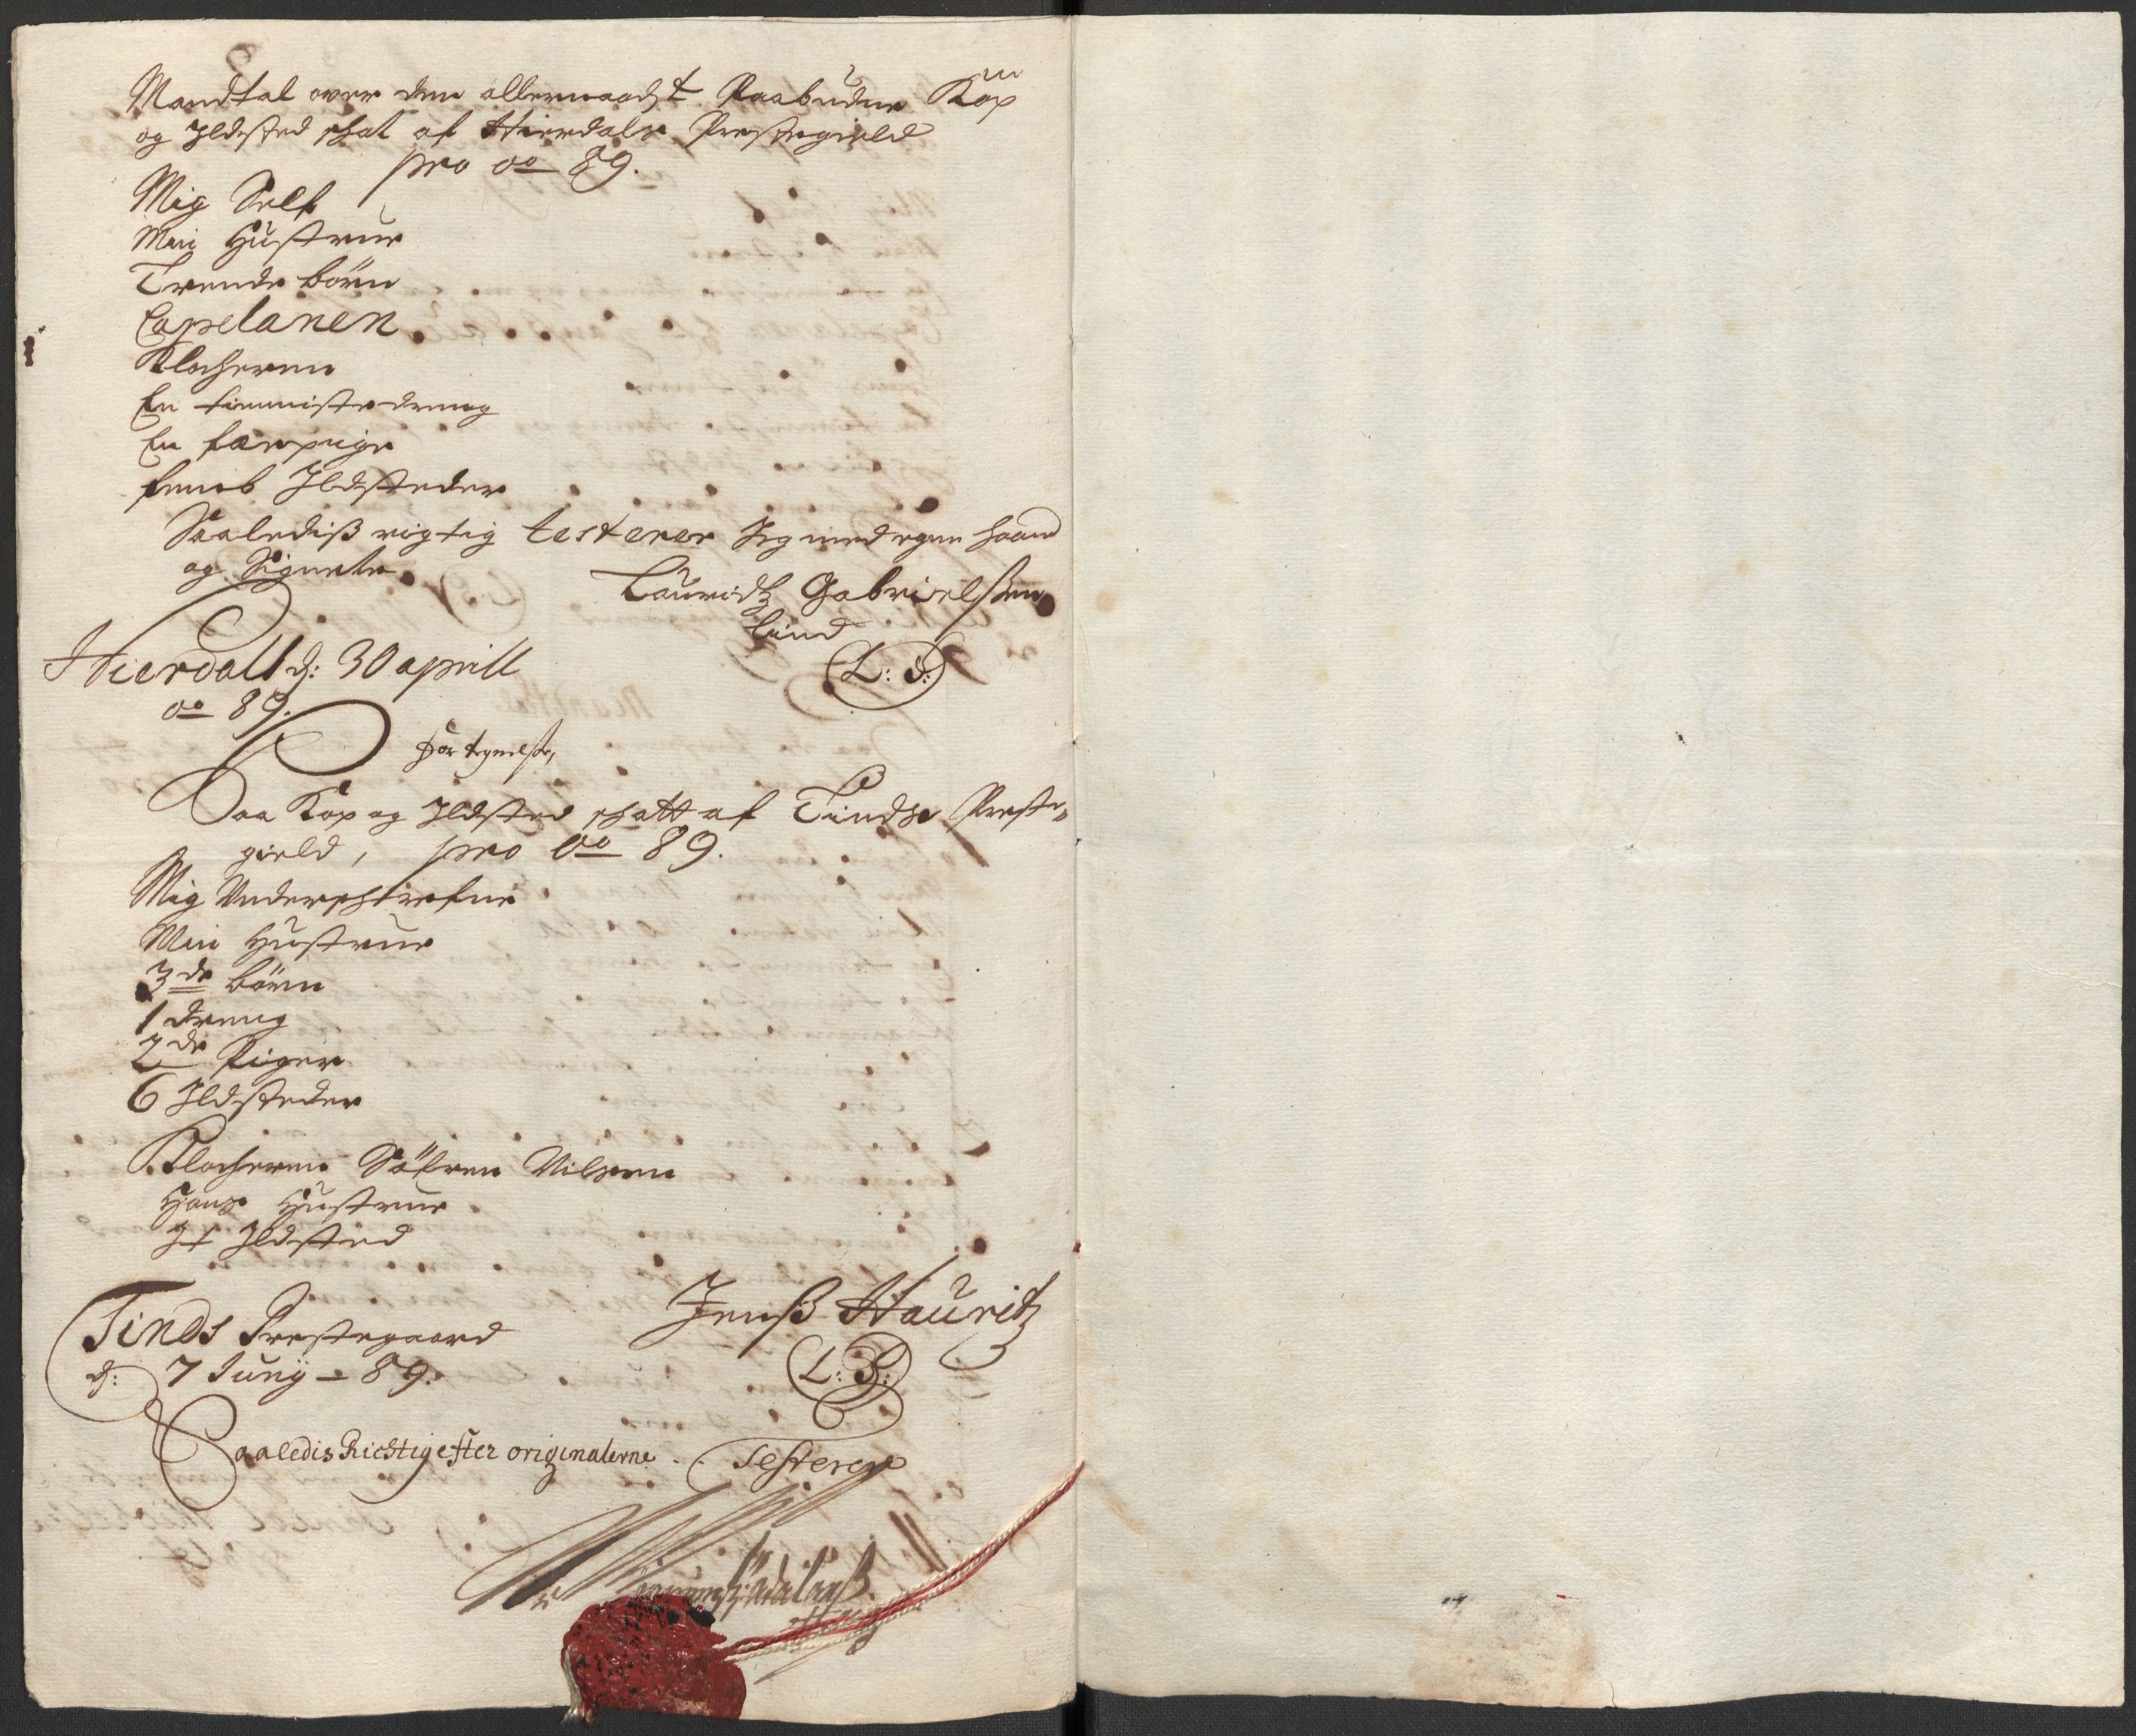 Mandtal over den allernaadst Paabudne Kop
og Ildsted skat af Hierdals Prestegield
pro ao 89.
Mig Self
Min Hustrue
Trende börn
Capelanen
Klocheren
En tienniste dreng
En pige
Ildsteder
Saalediß rigtig testerer Jeg med egen haand
og Signete
Lauridtz Gabrielßen
Lind
Hierdall d: 30 aprill
L: S:
ao 89.
Fortegnelse,
Paa Kop og Ildsted skatt af Tindss Preste
gield, pro Ao 89.
Mig Underschrefne
Min Hustrue
3de börn
1 dreng
2de Piger
6 Ildsteder
Klocheren Söfren Nilsen
Hans Hustrue
It Ildsted
Jenß Hauritz
Tinds Prestegaard
d: 7 Juny - 89.
L: S:
Saaledis Richtig efter originalerne. Testerer